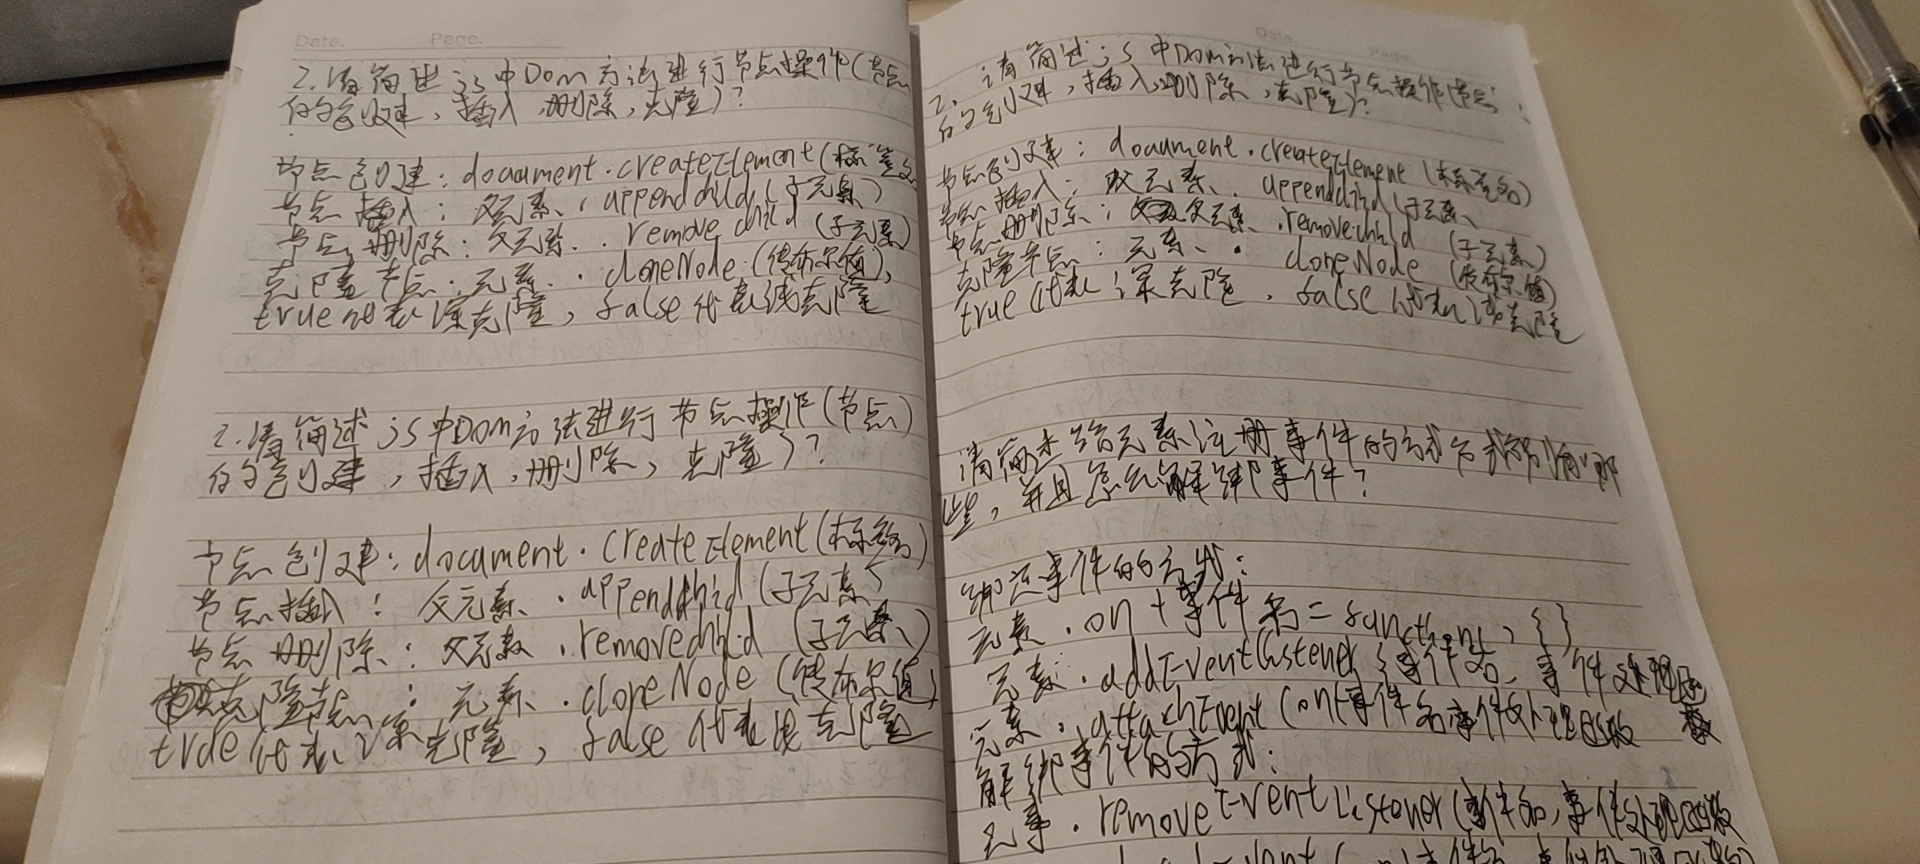 Date. Page.
2.请简述js中Dom方法进行节点操作(节点
的创建,插入,删除,克隆)?
节点创建:document.createElement(标签名
节点插入:父元素.appendchild(子元素)
节点删除:父元素.removechild(子元素)
克隆节点:元素.cloneNode(传布尔值),
true代表深克隆,false代表浅克隆
2.请简述js中Dom方法进行节点操作(节点)
的创建,插入,删除,克隆)?
节点创建:document.createElement(标签名)
节点插入:父元素.appendchid(子元素)
节点删除:父元素.removechild(子元素)
克隆节点:元素.cloneNode(传布尔值)
true代表深克隆,false代表浅克隆
Date. Page.
2.请简述js中Dom方法进行节点操作(节点
的创建,插入,删除,克隆)?
节点创建:document.createElement(标签名)
节点插入:父元素.appendchild(子元素、
节点删除:父元素.removechild(子元素)
克隆节点:元素.cloneNode(传布尔值)
true代表深克隆,false代表浅克隆
请简述给元素注册事件的方式 有那
些,并且怎么解绑事件?
绑定事件的方式:
元素.on+事件名=function,{}
元素.addEventListener(事件名,事件处理函
元素.attachEvent(on+事件名事件处理函数
解绑事件的方式:
元素.removeEventListener(事件名,事件处理函数